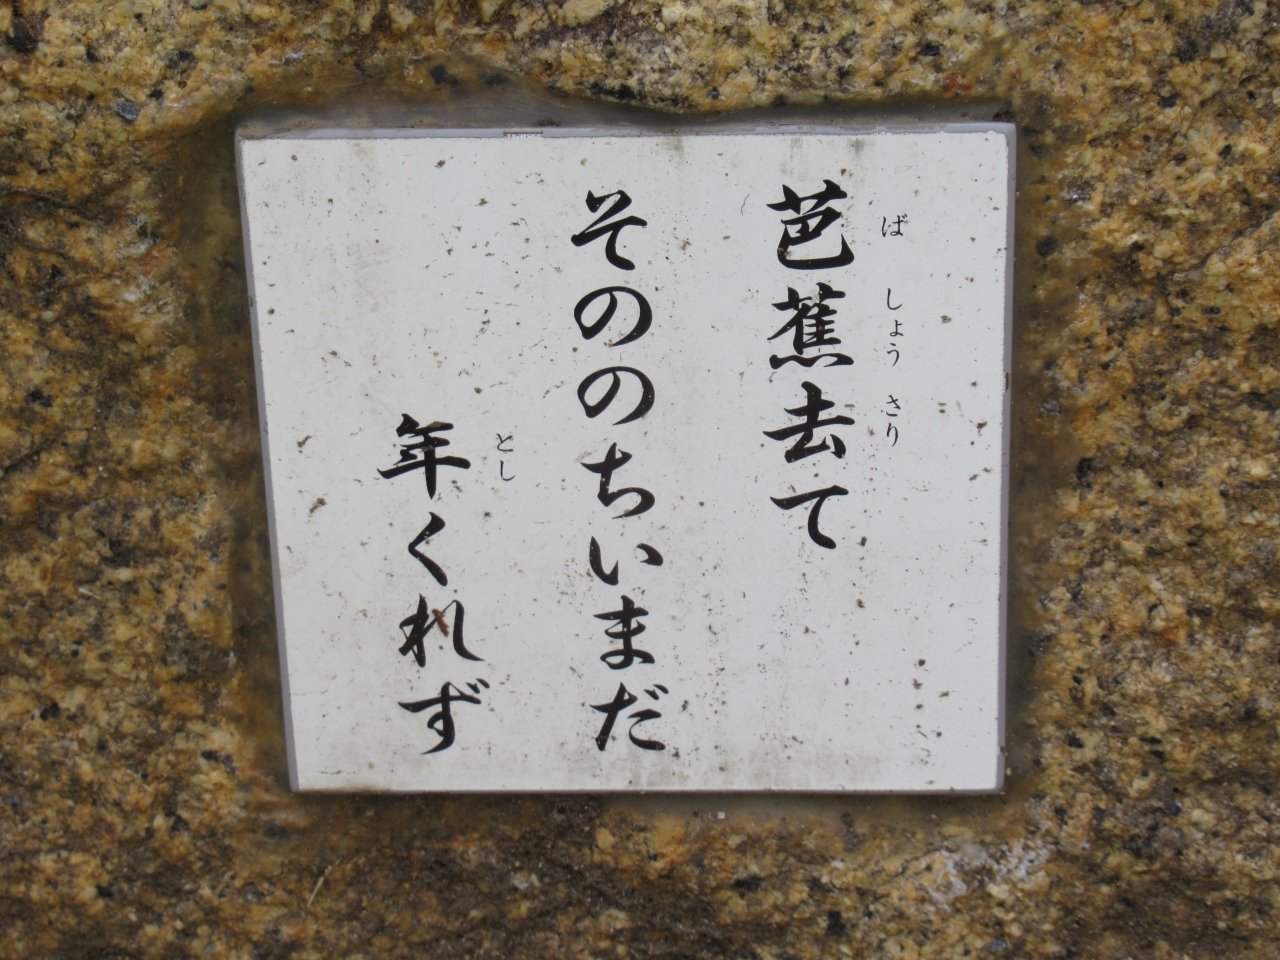 芭蕉去て
ばしょうさり
そのゝちいまだ
年くれず
とし